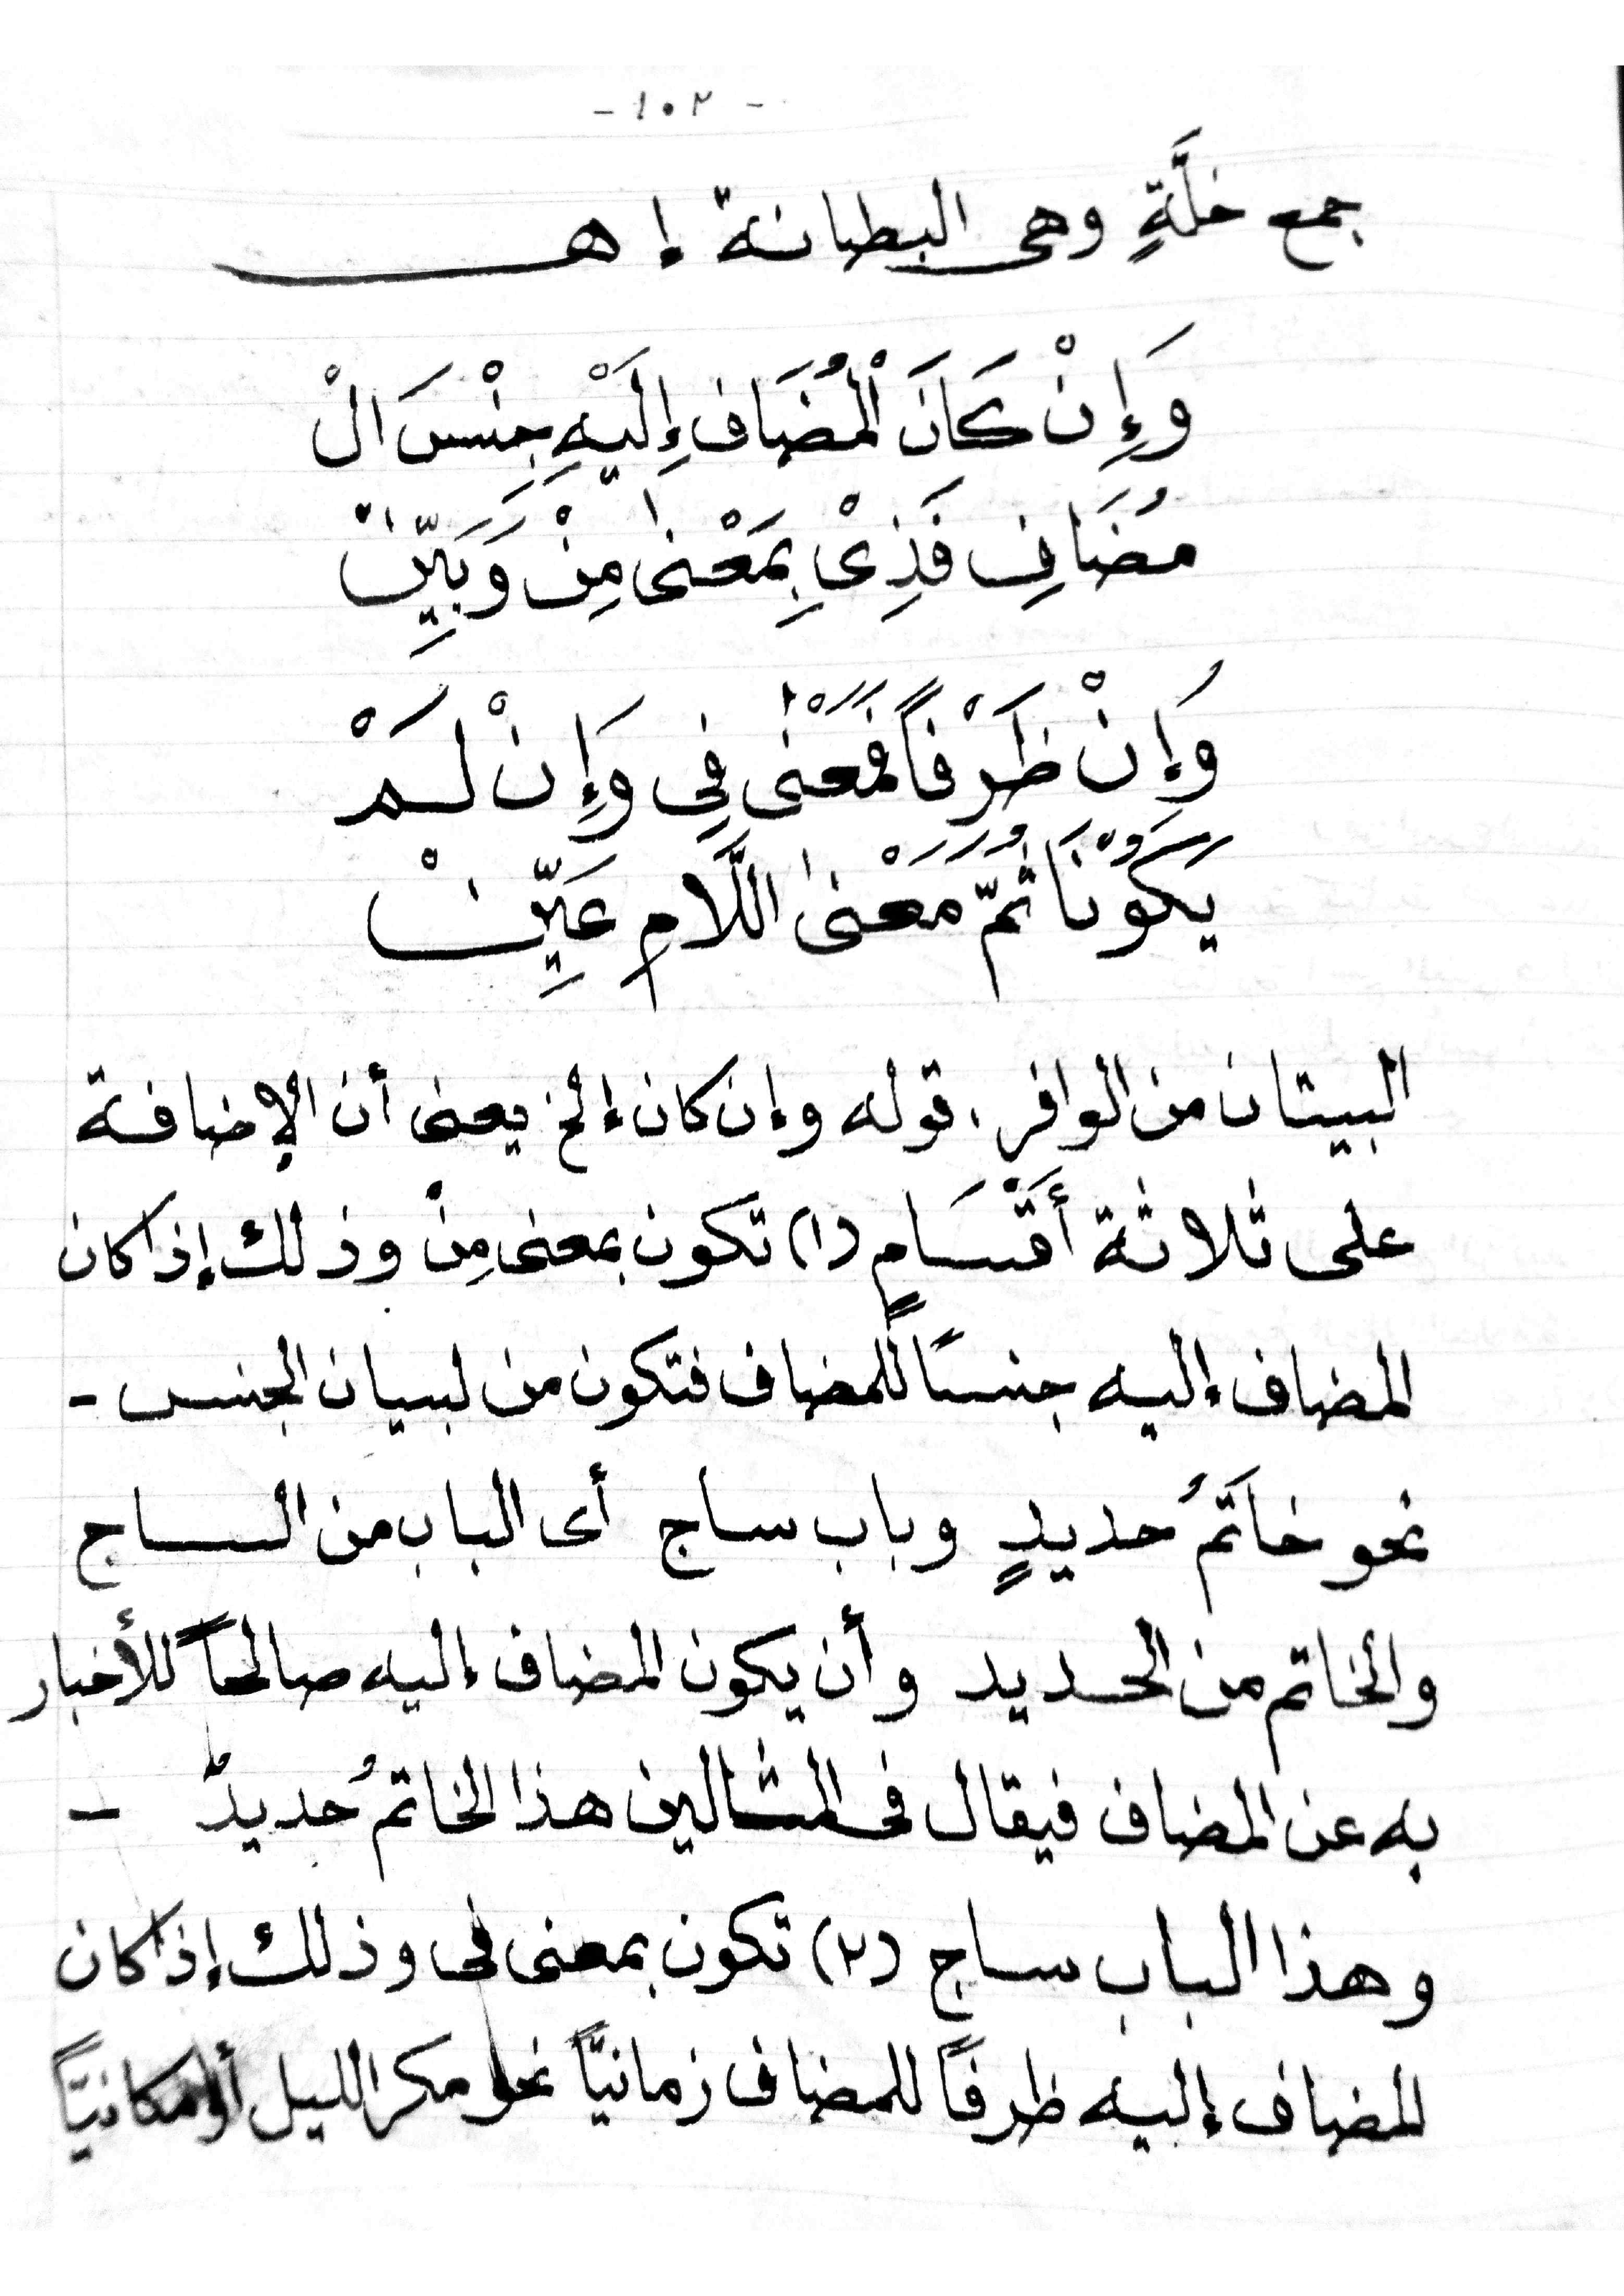 - ١٠٢ -
جمع خلَّةٍ وهى البطانة إ هـ
وَإِنْ كَانَ الْمُضَاف إِلَيْهِ جِنْسَ الْ
مُضَافِ فَذِىْ بِمَعْنىٰ مِنْ وَبَيِّنْ
وَإِنْ ظَرْفاً فَمَعْنٰى فِى وَإِنْ لَمْ
يَكُوْنَا ثُمَّ مَعْنىٰ اللَّامِ عَيِّنْ
البيتان من الوافر . قوله وإن كان إلخ يعنى أن الإضافة
على ثلاثة أَقْسَامٍ (١) تكون بمعنى مِنْ وذلك إذا كان
المضاف إليه جنساً للمضاف فتكون من لبيان الجنس -
نحو خاتَمُ حديدٍ وباب ساج أى الباب من الساج
والخاتم من الحديد وأن يكون المضاف إليه صالحاً للأخبار
به عن المضاف فيقال فى المثالين هذا الخاتمُ حديدٌ -
وهذا الباب ساج (٢) تكون بمعنى فى وذلك إذا كان
المضاف إليه ظرفاً للمضاف زمانيًّا نحو مكر الليل أو مكانيًّا